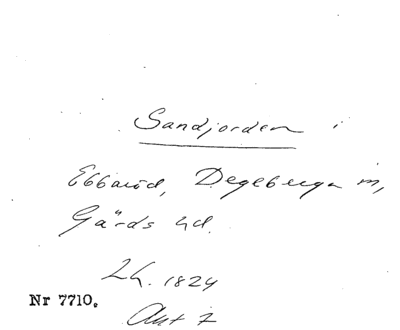 Sandjorden i
Ebbaröd, Degeberga sn,
Gärds hd.
Lh. 1824
Nr 7710.
Akt 7